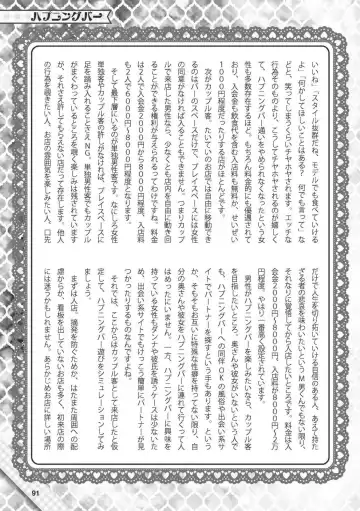 ハプニングバー
いいね」「スタイル抜群だね。モデルでも食べていける
よ」「何かしてほしいことはある? 何でも言って」な
どと、笑ってしまうくらいチヤホヤされます。エッチな
行為そのものより、こうしてチヤホヤされるのが嬉しく
て、ハプニングバー通いをやめられなくなったという女
性も多数存在するほど。もちろん料金的にも優遇されて
おり、入会金も飲食代も含む入店料も無料か、せいぜい
1000円程度だったりする店がほとんどです。
次がカップル客。たいていのお店では自由に移動でき
るのはバーのスペースだけで、プレイスペースには女性
の同意がなければ入ることもできません。つまりカップ
ルで来店した男性なら、少なくとも店内を自由に動き回
ることができる権利が与えられるわけですね。料金
は2人で入会金2000円から8000円程度、入店料
も2人で6000円〜8000円程度となります。
そして最下層にいるのが単独男性客です。なにしろ女性
単独客やカップル客の許しがなければ、プレイスペースに
足を踏み入れることさえNG。単独男性客でもカップル
がまぐわっているところを覗く楽しみは残されています
が、それさえ許してもらえない店だって存在します。他人
の行為を覗きたい人、お店の雰囲気を楽しみたい人、口先
だけで人生を切り拓いていける自信のある人、あえて持た
ざる者の悲哀を味わいたいというM男くんでもない限り、
それなりに覚悟してから入店したいところです。料金は入
会金2000円〜8000円、入店料が8000円〜2万
円程度。やはり一番高く設定されています。
男性がハプニングバーを楽しみたいなら、カップル客
を目指したいところ。奥さんや彼女がいないという人で
も、ハプニングバーへの同伴OKの風俗や出会い系サ
イトでパートナーを探すという手もあります。というか、
そもそもお互いに特殊な性癖を持ってない限り、自
分の奥さんや彼女をハプニングバーに連れて行くって人
はめったにいません。一方、ハプニングバーに興味を
持つ女性がホンキの彼氏を誘うってケースは少ないた
め、出会い系サイトでもけっこう簡単にパートナーが見
つかったりするものなんですよね。
それでは、ここからはカップル客として来店したと仮
定して、ハプニングバー遊びをシミュレーションしてみ
ましょう。
まずは入店。摘発を防ぐためか、はたまた周囲への配
慮からか、看板を出していないお店も多く、初来店の際
には迷うかもしれません。あらかじめお店に詳しい場所
91